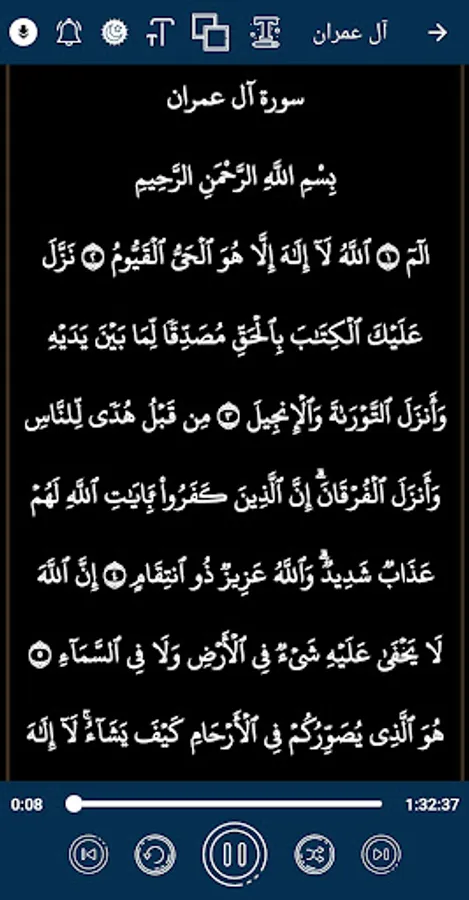 آل عمران
سورة آل عمران
بِسْمِ اللَّهِ الرَّحْمَنِ الرَّحِيمِ
الٓمٓ ۝١ ٱللَّهُ لَآ إِلَٰهَ إِلَّا هُوَ ٱلْحَىُّ ٱلْقَيُّومُ ۝٢ نَزَّلَ
عَلَيْكَ ٱلْكِتَٰبَ بِٱلْحَقِّ مُصَدِّقًا لِّمَا بَيْنَ يَدَيْهِ
وَأَنزَلَ ٱلتَّوْرَىٰةَ وَٱلْإِنجِيلَ ۝٣ مِن قَبْلُ هُدًى لِّلنَّاسِ
وَأَنزَلَ ٱلْفُرْقَانَ ۗ إِنَّ ٱلَّذِينَ كَفَرُوا۟ بِـَٔايَٰتِ ٱللَّهِ لَهُمْ
عَذَابٌ شَدِيدٌ ۗ وَٱللَّهُ عَزِيزٌ ذُو ٱنتِقَامٍ ۝٤ إِنَّ ٱللَّهَ
لَا يَخْفَىٰ عَلَيْهِ شَىْءٌ فِى ٱلْأَرْضِ وَلَا فِى ٱلسَّمَآءِ ۝٥
هُوَ ٱلَّذِى يُصَوِّرُكُمْ فِى ٱلْأَرْحَامِ كَيْفَ يَشَآءُ ۚ لَآ إِلَٰهَ
0:08 1:32:37